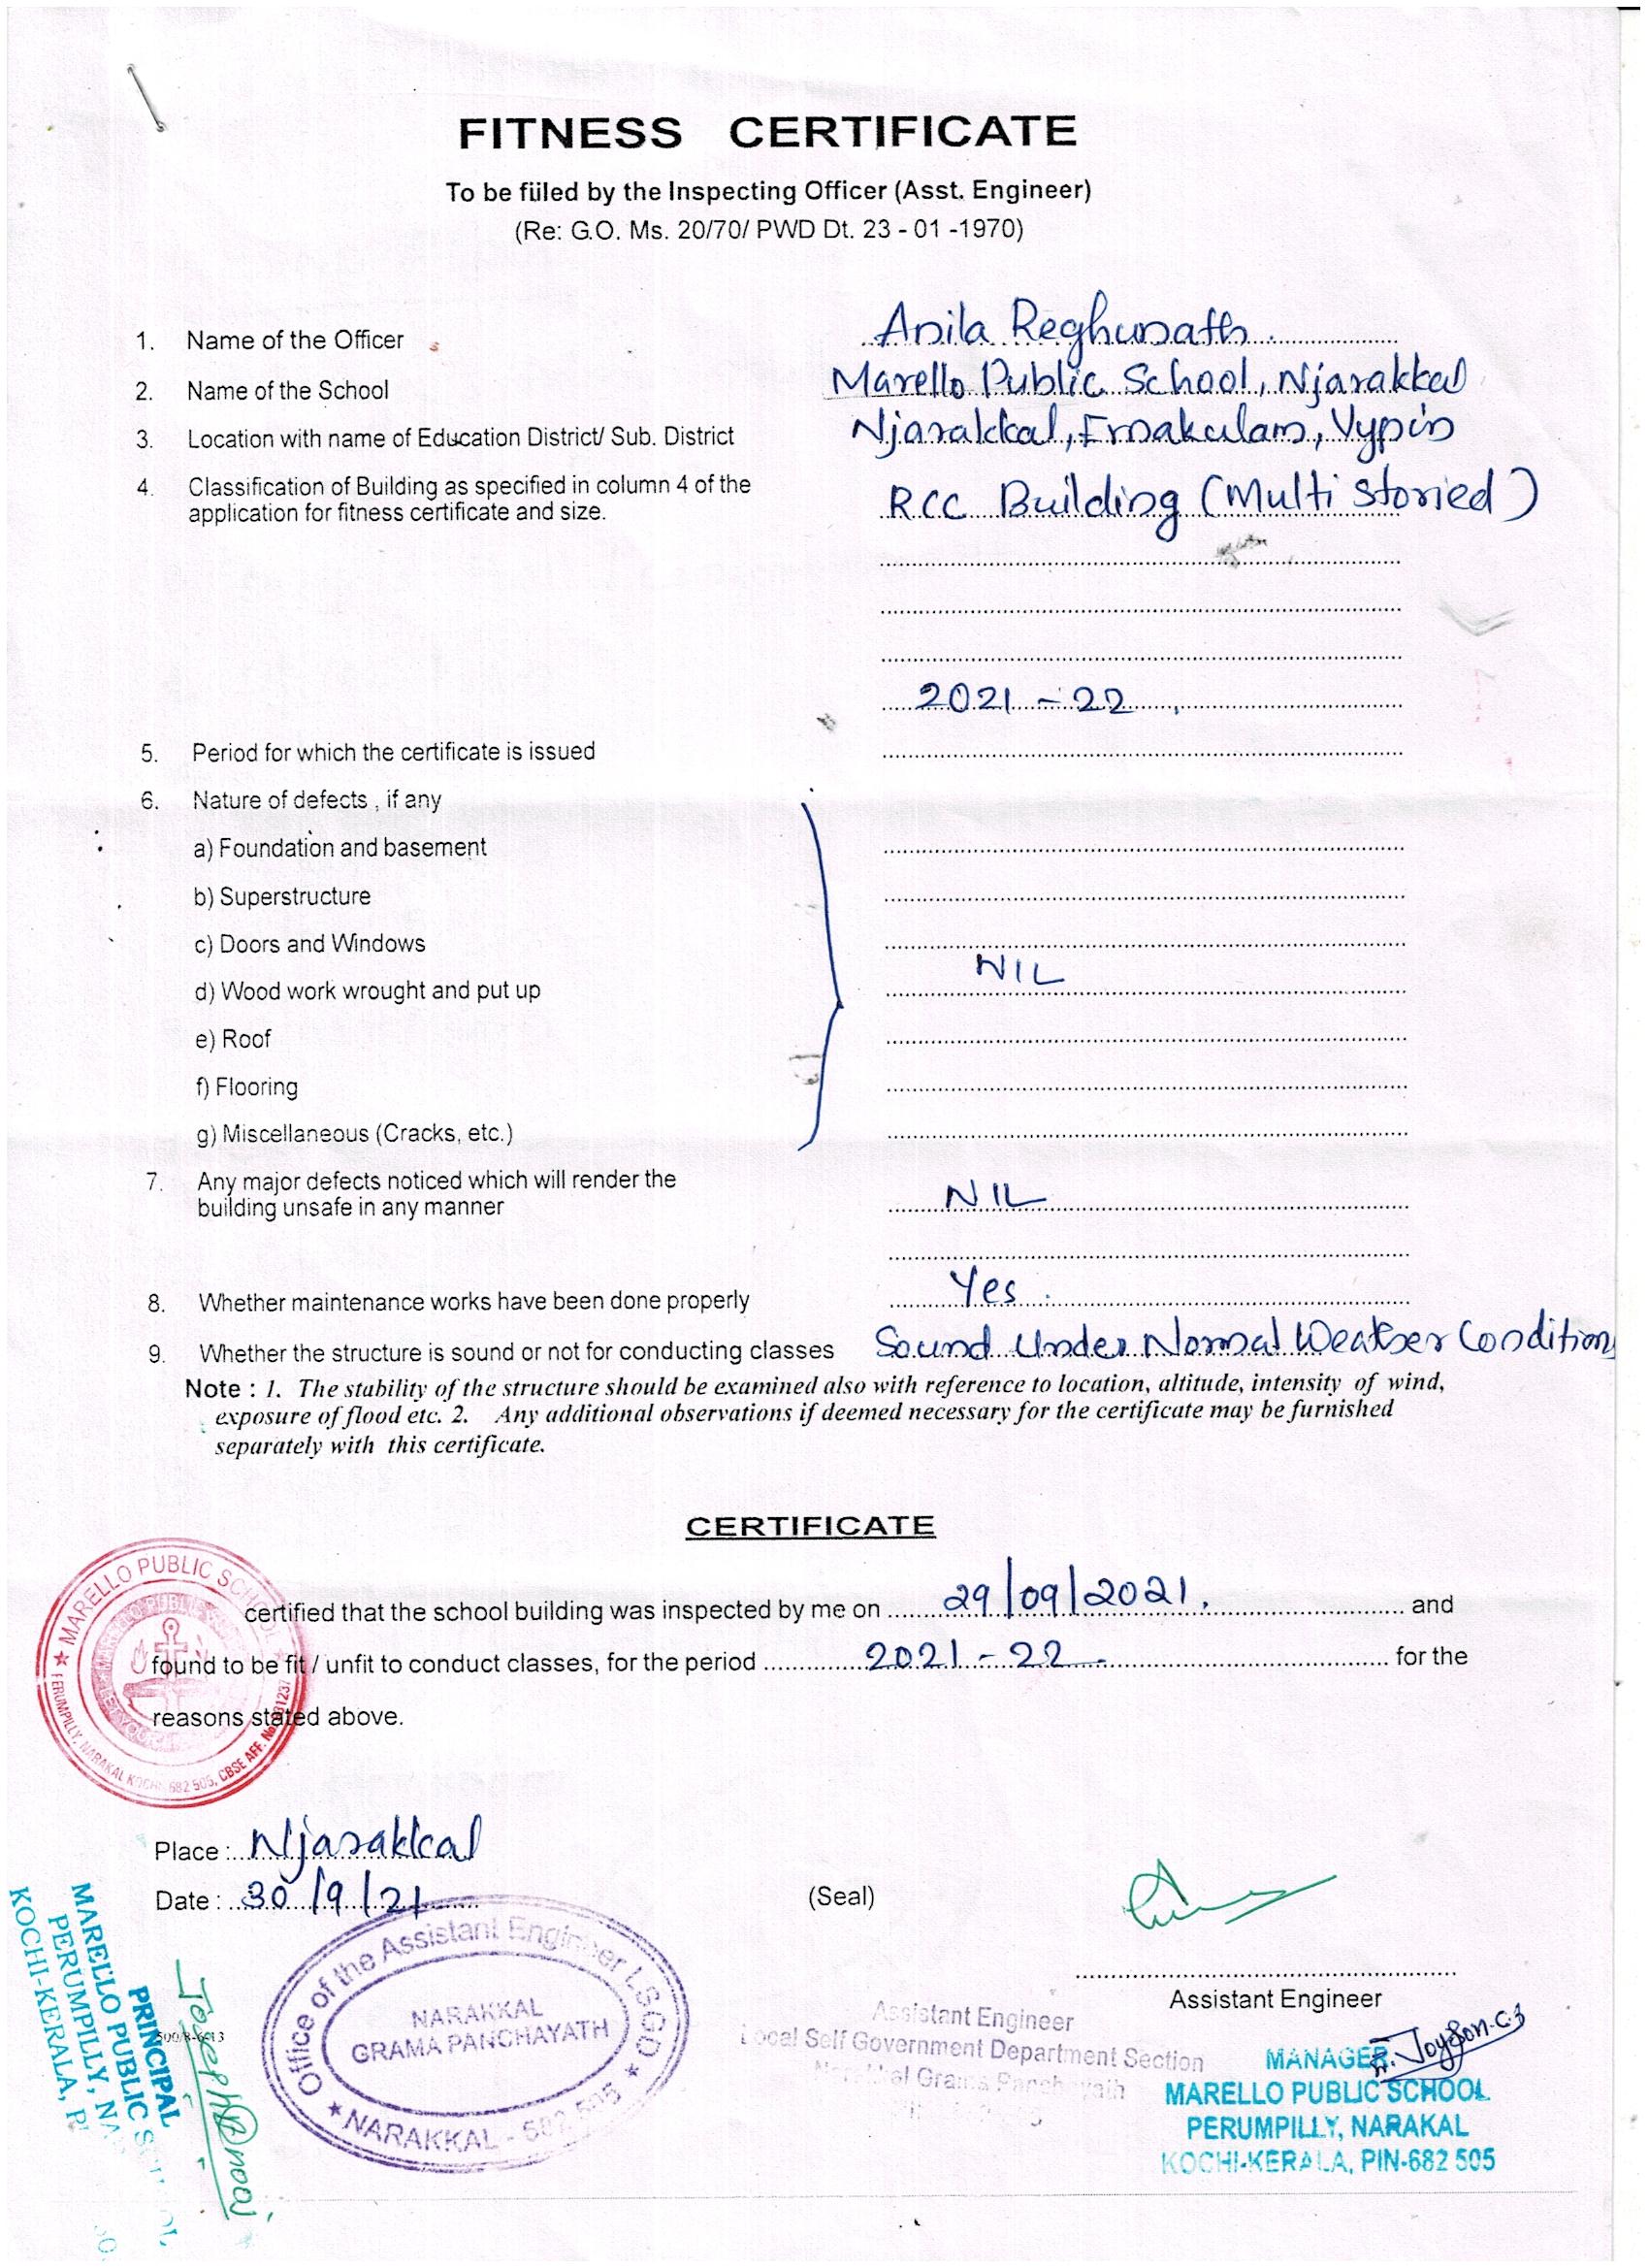 FITNESS CERTIFICATE
To be filled by the Inspecting Officer (Asst. Engineer)
(Re: G.O. Ms. 20/70/ PWD Dt. 23 - 01 -1970)
1. Name of the Officer Anila Reghunath
2. Name of the School Marello Public School, Njarakkal
3. Location with name of Education District/ Sub. District Njarakkal, Ernakulam, Vypin
4. Classification of Building as specified in column 4 of the
application for fitness certificate and size. RCC Building (Multi storied)
2021 - 22
5. Period for which the certificate is issued
6. Nature of defects , if any
a) Foundation and basement
b) Superstructure
c) Doors and Windows
NIL
d) Wood work wrought and put up
e) Roof
f) Flooring
g) Miscellaneous (Cracks, etc.)
7. Any major defects noticed which will render the
building unsafe in any manner NIL
8. Whether maintenance works have been done properly Yes
9. Whether the structure is sound or not for conducting classes Sound Under Normal Weather Condition
Note : 1. The stability of the structure should be examined also with reference to location, altitude, intensity of wind,
exposure of flood etc. 2. Any additional observations if deemed necessary for the certificate may be furnished
separately with this certificate.
CERTIFICATE
certified that the school building was inspected by me on 29/09/2021. and
found to be fit / unfit to conduct classes, for the period 2021 - 22 for the
reasons stated above.
MARELLO PUBLIC SCHOOL
PERUMPILLY, NARAKAL KOCHI 682 505, CBSE AFF. No.
Place : Njarakkal
Date : 30/9/21
(Seal)
Assistant Engineer
Office of the Assistant Engineer LSGD
NARAKKAL
GRAMA PANCHAYATH
NARAKKAL - 682 505
Assistant Engineer
Local Self Government Department Section
Narakkal Grama Panchayath
Joyson.C.J
MANAGER
MARELLO PUBLIC SCHOOL
PERUMPILLY, NARAKAL
KOCHI-KERALA, PIN-682 505
PRINCIPAL
MARELLO PUBLIC
PERUMPILLY,
KOCHI-KERALA,